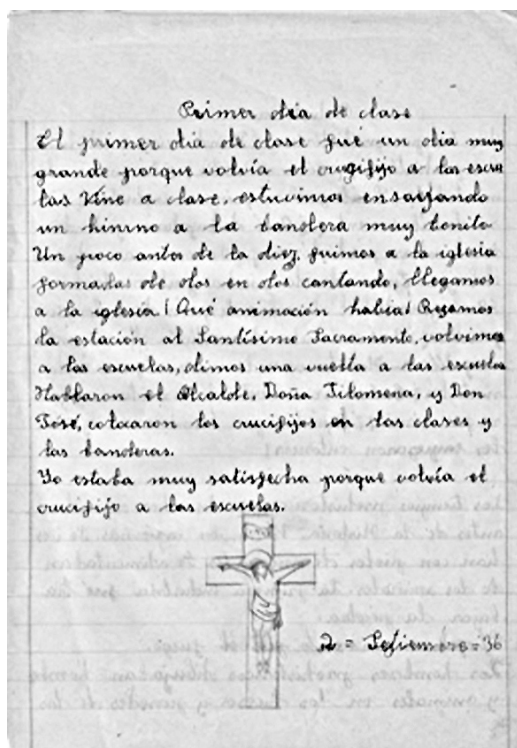 Primer dia de clase
El primer dia de clase fué un dia muy
grande porque volvía el crugifijo a las escue
las Vine a clase, estuvimos ensayando
un himno a la bandera muy bonito
Un poco antes de la diez, fuimos a la iglesia
formadas de dos en dos cantando, llegamos
a la iglesia ¡Qué animación habia! Rezamos
la estación al Santísimo Sacramento, volvimos
a las escuelas, dimos una vuelta a las escuelas
Hablaron el Alcalde, Doña Filomena, y Don
José, colocaron los crucifijos en las clases y
las banderas.
Yo estaba muy satisfecha porque volvía el
crucifijo a las escuelas.
2 = Septiembre = 36